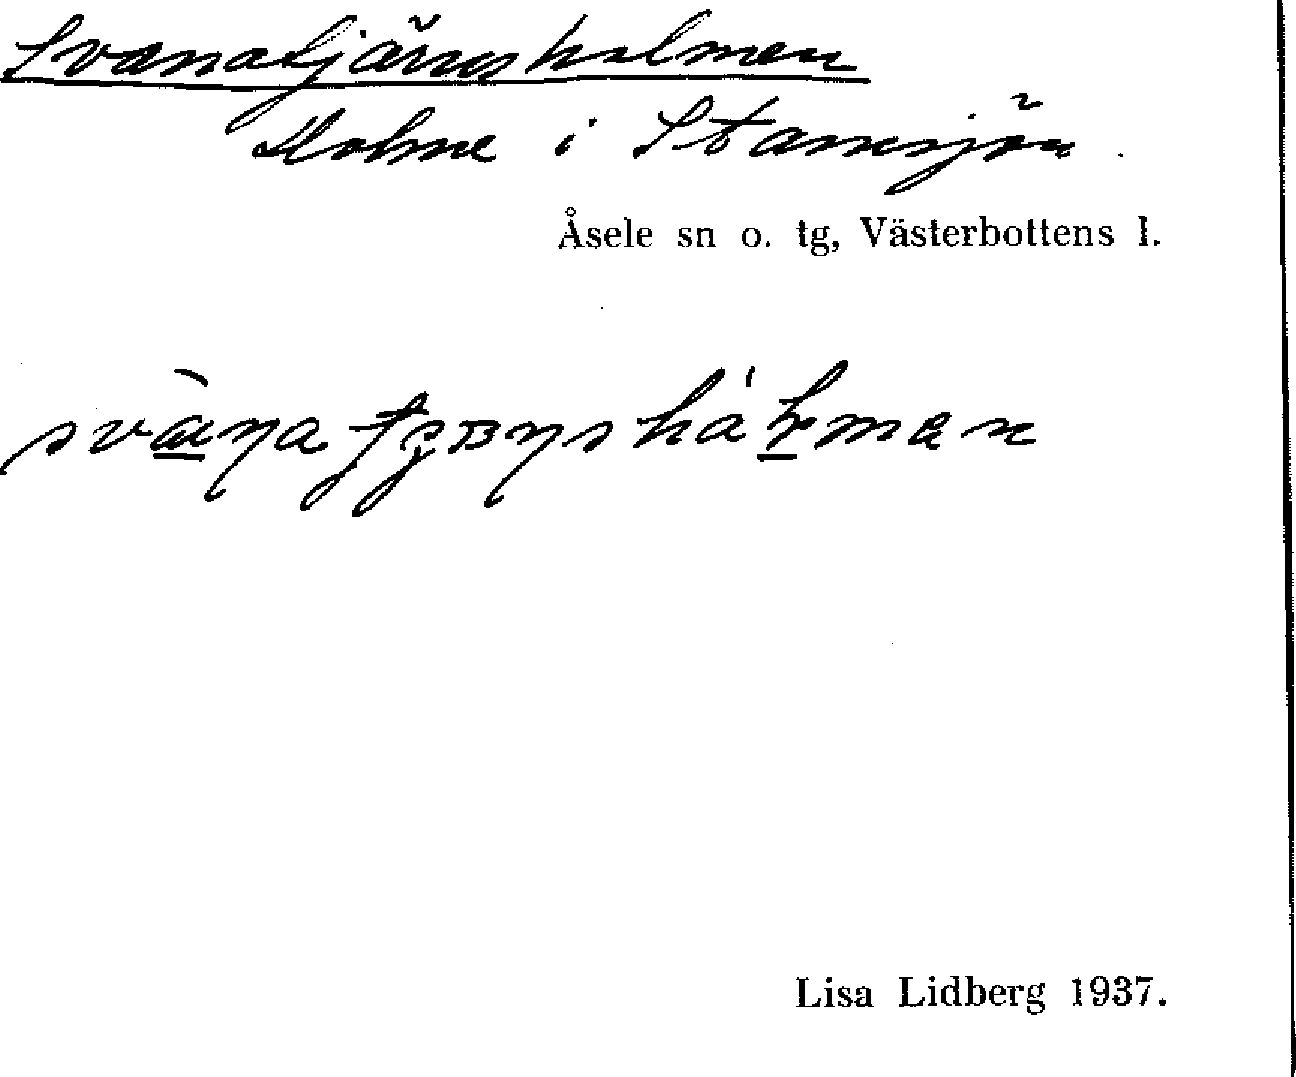 Svanatjärnsholmen
Holme i Stamsjön.
Åsele sn o. tg, Västerbottens l.
Lisa Lidberg 1937.